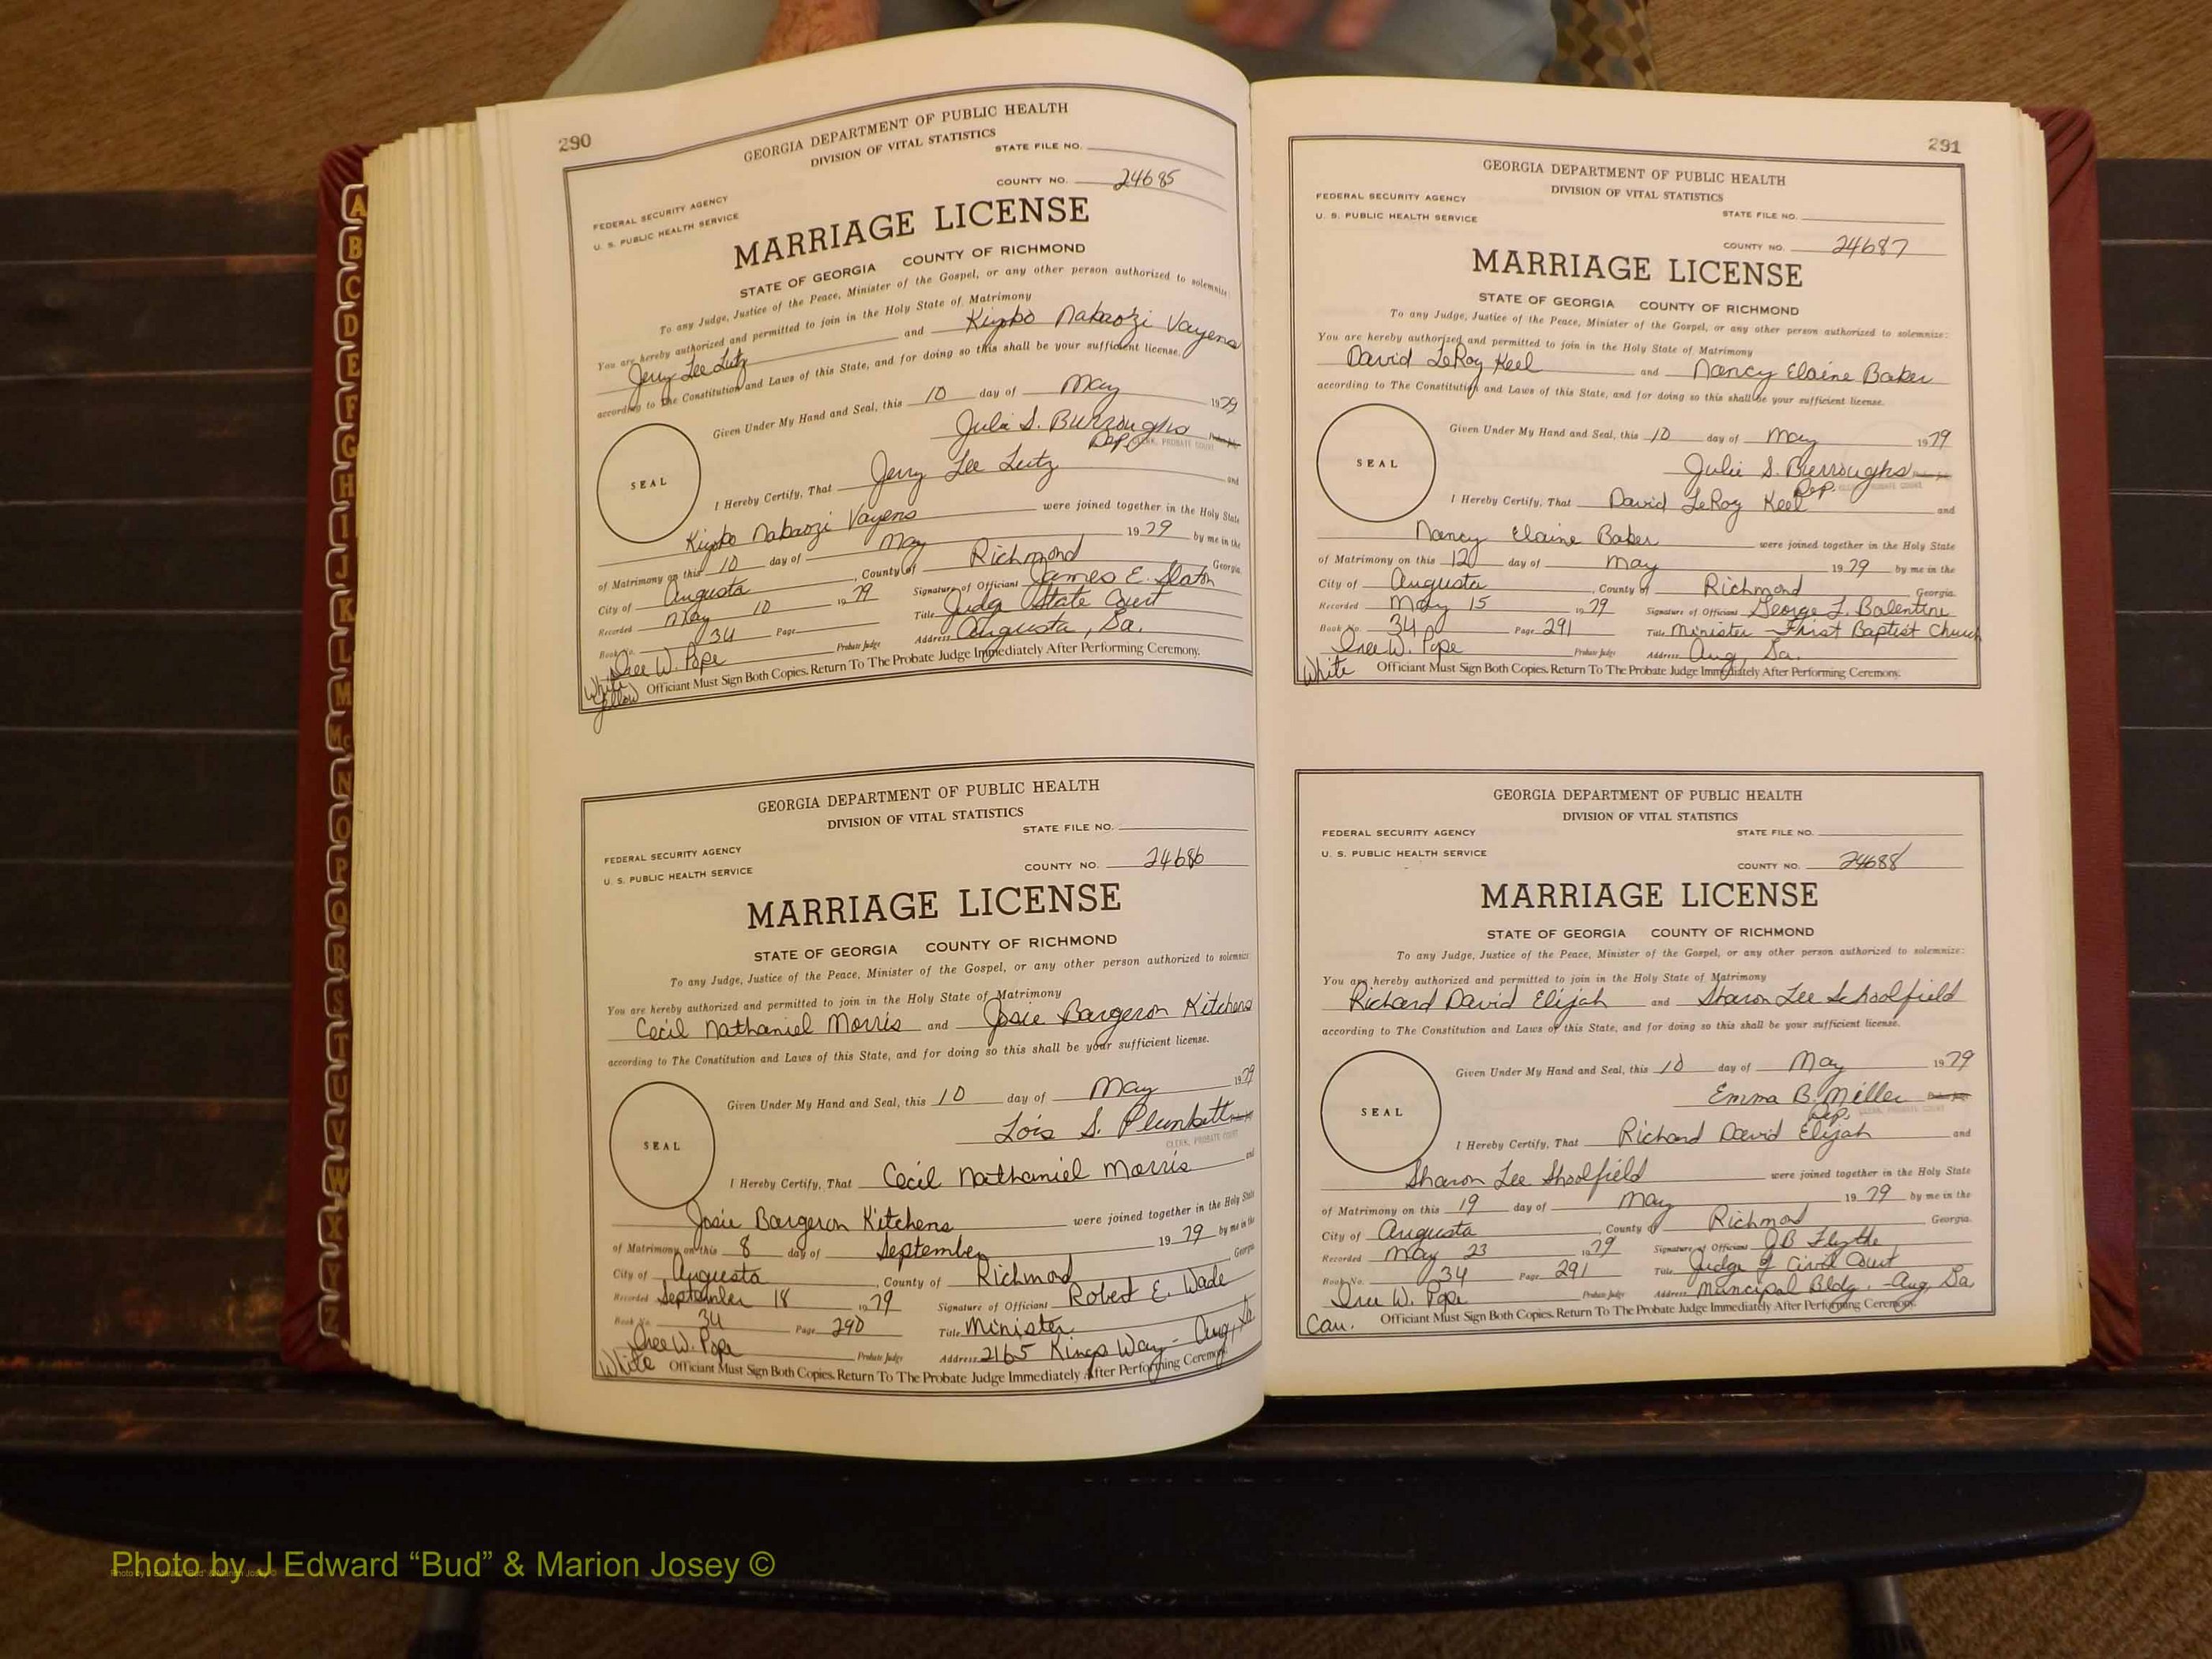 290
GEORGIA DEPARTMENT OF PUBLIC HEALTH
DIVISION OF VITAL STATISTICS
STATE FILE NO.
FEDERAL SECURITY AGENCY
U. S. PUBLIC HEALTH SERVICE
COUNTY NO. 24685
MARRIAGE LICENSE
STATE OF GEORGIA COUNTY OF RICHMOND
To any Judge, Justice of the Peace, Minister of the Gospel, or any other person authorized to solemnize:
You are hereby authorized and permitted to join in the Holy State of Matrimony
Jerry Lee Lutz and Kiyoko Vayens
according to The Constitution and Laws of this State, and for doing so this shall be your sufficient license.
Given Under My Hand and Seal, this 10 day of May 1979
Julie S. Burroughs
Dep. CLERK, PROBATE COURT
SEAL
I Hereby Certify, That Jerry Lee Lutz and
Kiyoko Vayens were joined together in the Holy State
of Matrimony on this 10 day of May 1979 by me in the
City of Augusta, County of Richmond Georgia.
Recorded May 10 1979 Signature of Officiant James E. Slaton
Book No. 34 Page Title Judge State Court
Iree W. Pope Probate Judge Address Augusta, Ga.
White Yellow Officiant Must Sign Both Copies. Return To The Probate Judge Immediately After Performing Ceremony.
GEORGIA DEPARTMENT OF PUBLIC HEALTH
DIVISION OF VITAL STATISTICS
STATE FILE NO.
FEDERAL SECURITY AGENCY
U. S. PUBLIC HEALTH SERVICE
COUNTY NO. 24686
MARRIAGE LICENSE
STATE OF GEORGIA COUNTY OF RICHMOND
To any Judge, Justice of the Peace, Minister of the Gospel, or any other person authorized to solemnize:
You are hereby authorized and permitted to join in the Holy State of Matrimony
Cecil Nathaniel Morris and Josie Bargeron Kitchens
according to The Constitution and Laws of this State, and for doing so this shall be your sufficient license.
Given Under My Hand and Seal, this 10 day of May 1979
Lois S. Plunkett
CLERK, PROBATE COURT
SEAL
I Hereby Certify, That Cecil Nathaniel Morris and
Josie Bargeron Kitchens were joined together in the Holy State
of Matrimony on this 8 day of September 1979 by me in the
City of Augusta, County of Richmond Georgia
Recorded September 18 1979 Signature of Officiant Robert E. Wade
Book No. 34 Page 290 Title Minister
Iree W. Pope Probate Judge Address 2165 Kings Way - Aug, Ga
White Officiant Must Sign Both Copies. Return To The Probate Judge Immediately After Performing Ceremony.
291
GEORGIA DEPARTMENT OF PUBLIC HEALTH
DIVISION OF VITAL STATISTICS
FEDERAL SECURITY AGENCY
U. S. PUBLIC HEALTH SERVICE
STATE FILE NO.
COUNTY NO. 24687
MARRIAGE LICENSE
STATE OF GEORGIA COUNTY OF RICHMOND
To any Judge, Justice of the Peace, Minister of the Gospel, or any other person authorized to solemnize:
You are hereby authorized and permitted to join in the Holy State of Matrimony
David LeRoy Keel and Nancy Elaine Baker
according to The Constitution and Laws of this State, and for doing so this shall be your sufficient license.
Given Under My Hand and Seal, this 10 day of May 1979
Julie S. Burroughs
Dep. CLERK, PROBATE COURT
SEAL
I Hereby Certify, That David LeRoy Keel and
Nancy Elaine Baker were joined together in the Holy State
of Matrimony on this 12 day of May 1979 by me in the
City of Augusta, County of Richmond Georgia.
Recorded May 15 1979 Signature of Officiant George L. Balentine
Book No. 34 Page 291 Title Minister - First Baptist Church
Iree W. Pope Probate Judge Address Aug Ga.
White Officiant Must Sign Both Copies. Return To The Probate Judge Immediately After Performing Ceremony.
GEORGIA DEPARTMENT OF PUBLIC HEALTH
DIVISION OF VITAL STATISTICS
FEDERAL SECURITY AGENCY
STATE FILE NO.
U. S. PUBLIC HEALTH SERVICE
COUNTY NO. 24688
MARRIAGE LICENSE
STATE OF GEORGIA COUNTY OF RICHMOND
To any Judge, Justice of the Peace, Minister of the Gospel, or any other person authorized to solemnize:
You are hereby authorized and permitted to join in the Holy State of Matrimony
Richard David Elijah and Sharon Lee Schoolfield
according to The Constitution and Laws of this State, and for doing so this shall be your sufficient license.
Given Under My Hand and Seal, this 10 day of May 1979
Emma B. Miller Probate Judge
Dep. CLERK, PROBATE COURT
SEAL
I Hereby Certify, That Richard David Elijah and
Sharon Lee Shoolfield were joined together in the Holy State
of Matrimony on this 19 day of May 1979 by me in the
City of Augusta, County of Richmond Georgia.
Recorded May 23 1979 Signature of Officiant JB Flythe
Book No. 34 Page 291 Title Judge of Civil Court
Iree W. Pope Probate Judge Address Muncipal Bldg. - Aug, Ga
Cau. Officiant Must Sign Both Copies. Return To The Probate Judge Immediately After Performing Ceremony.
A
B
C
D
E
F
G
H
I
J
K
L
M
Mc
N
O
P
Q
R
S
T
U
V
W
X
Y
Z
Photo by J Edward “Bud” & Marion Josey ©